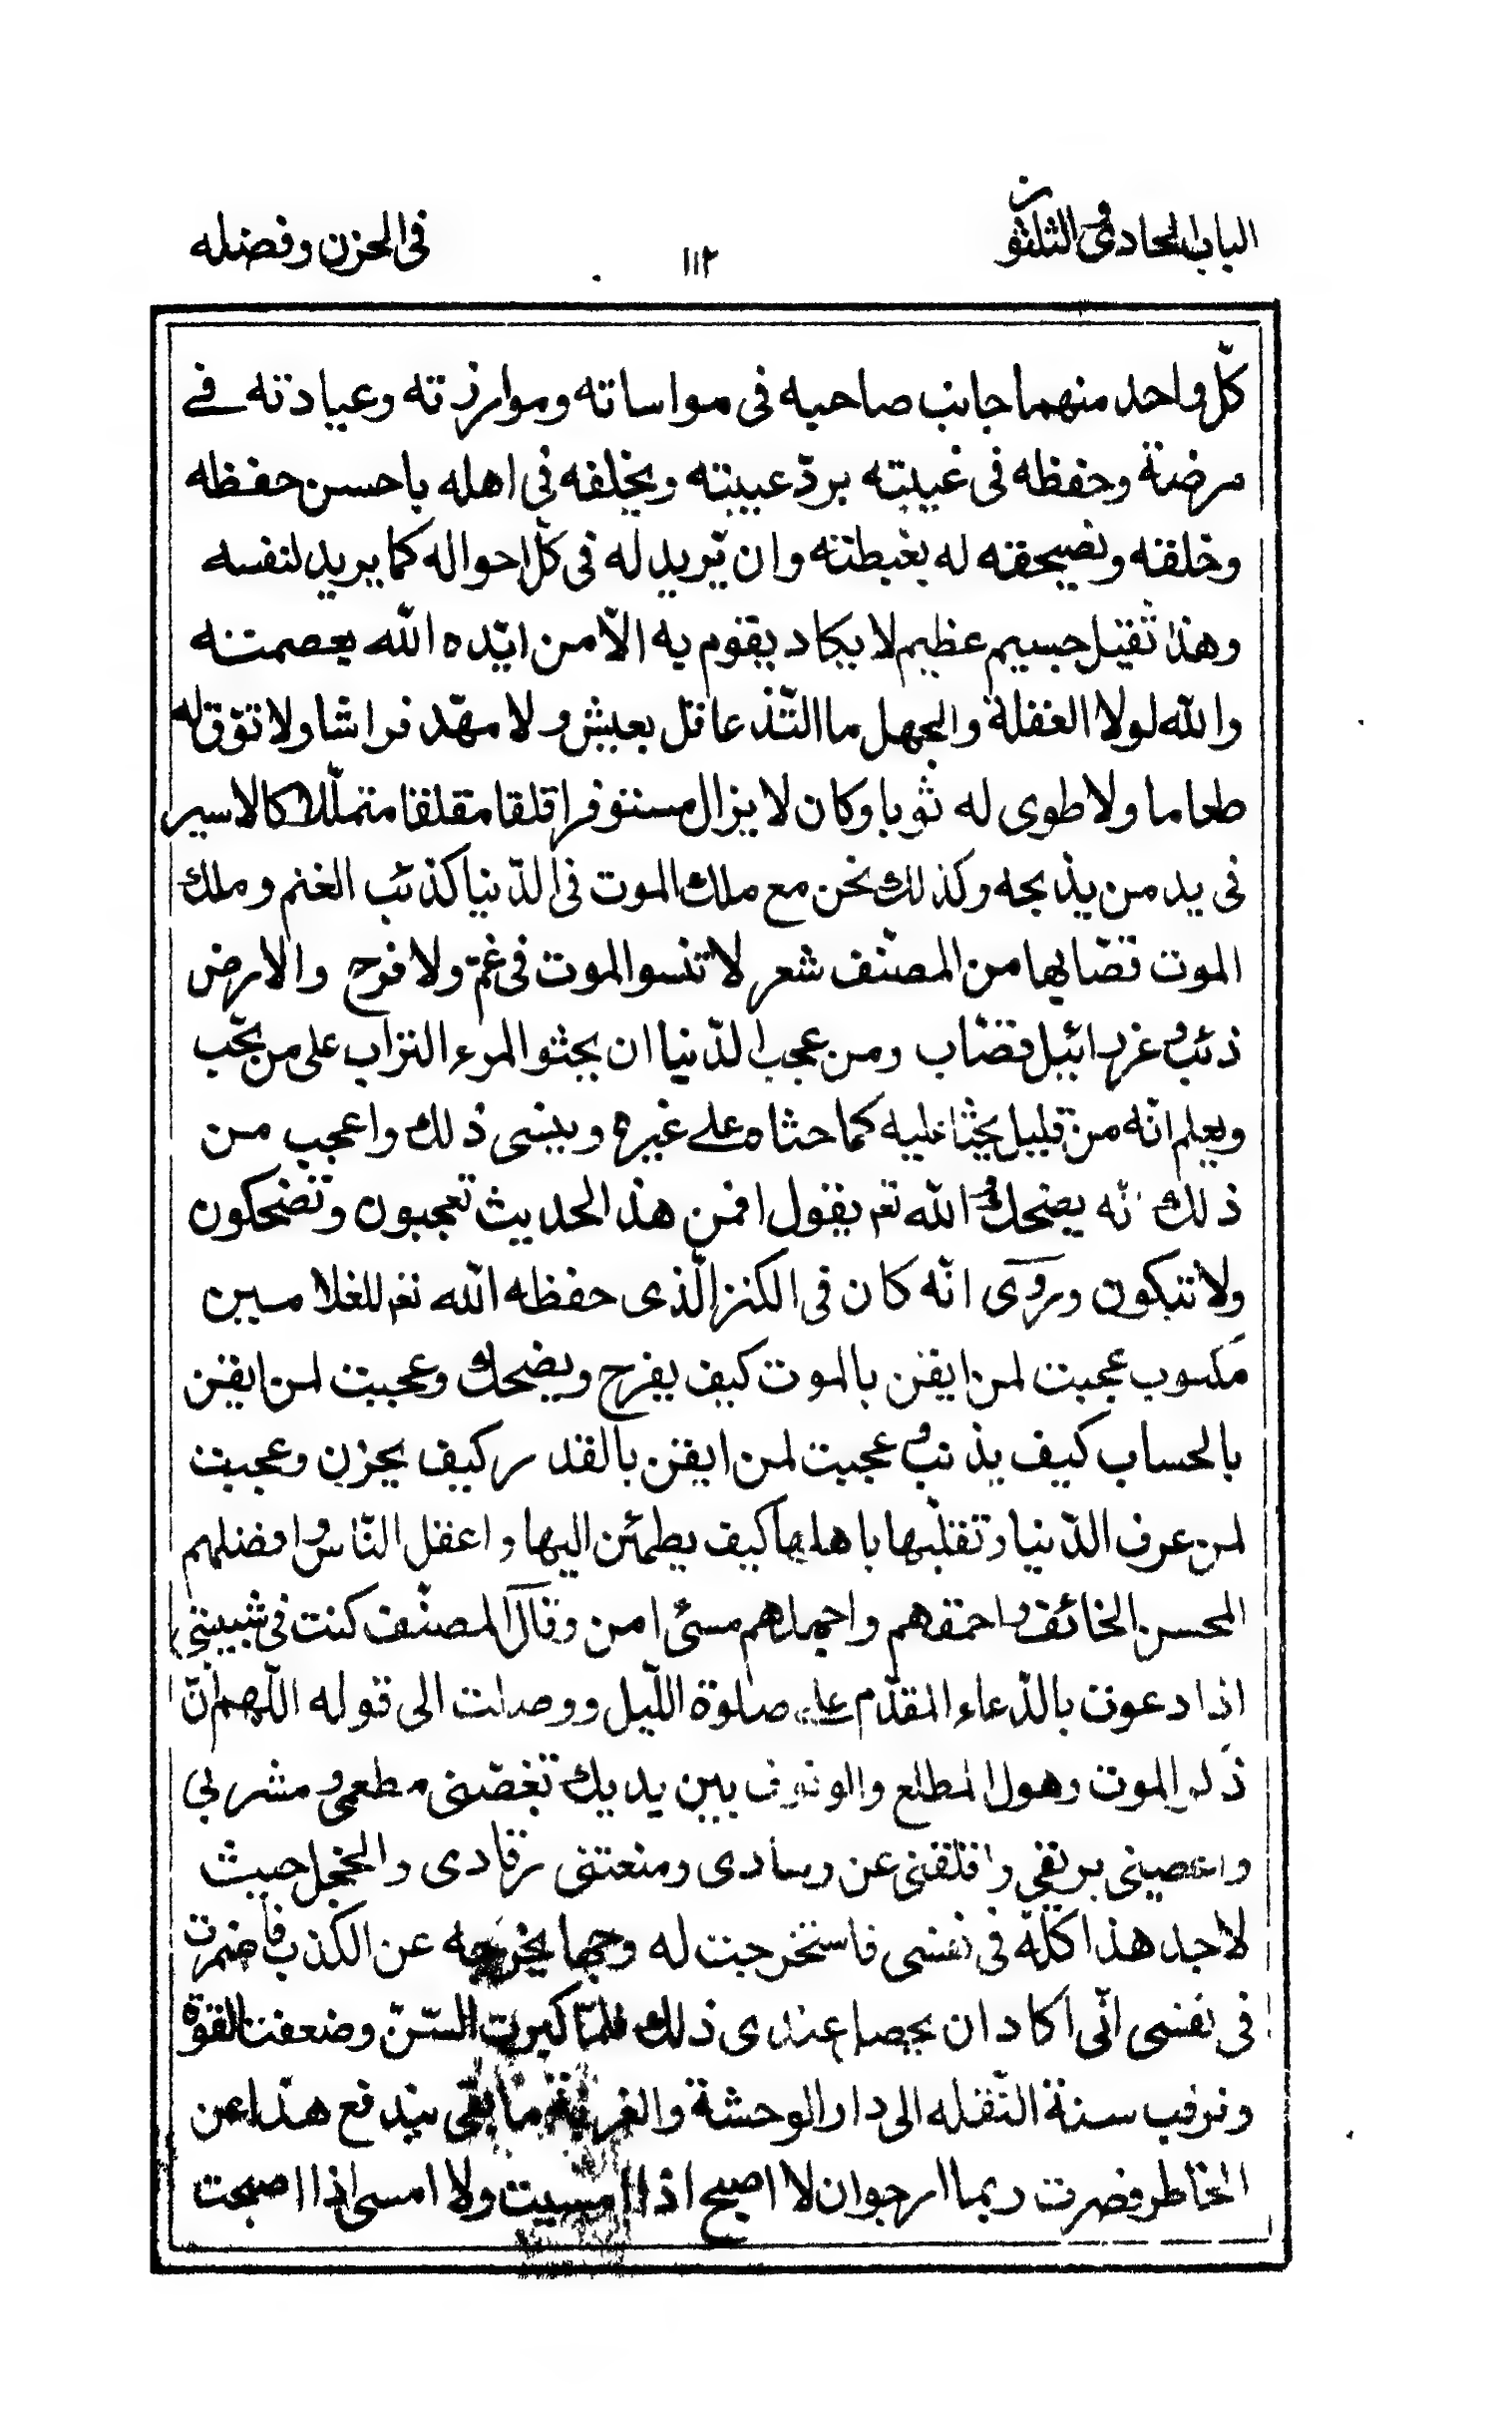 الباب الحادی و الثلثون
١١٢
فی الحزن وفضله
کلّ واحد منهما جانب صاحبه فی مواساته وموازرته وعیادته فے
مرضة وحفظه فی غیبته بردّ عیبته ویخلفه فی اهله باحسن حفظه
وخلقته ونصیحته له بغبطته وان یّرید له فی کلّ احواله کما یرید لنفسه
وهذا ثقیل جسیم عظیم لا یکاد یقوم به الّا من ایّده اللّه بعصمته
واللّه لولا الغفلة والجهل ما التّذ عاقل بعیش ولا مهّد فراشا ولا توّق له
طعاما ولا طوی له ثوبا وکان لا یزال مستوفزا قلقا مقلقا متملّلا کالاسیر
فی ید من یذبحه وکذلك نحن مع ملك الموت فی الدّنیا کذئب الغنم وملك
الموت قصّابها من المصنّف شعر لا تنسو الموت فی غمّ ولا فرح والارض
ذئب وعزرائیل قصّاب ومن عجب الدّنیا ان یحثو المرء التراب علی من یحّب
ویعلم انّه من قلیل یحثا علیه کما حثاه علے غیره وینسی ذلك واعجب من
ذلك انّه یضحك واللّه تعم یقول افمن هذا الحدیث تعجبون وتضحکون
ولا تبکون وروی انّه کان فی الکنز الّذی حفظه اللّه تعم للغلامین
مکتوب عجبت لمن ایقن بالموت کیف یفرح ویضحك وعجبت لمن ایقن
بالحساب کیف یذنب و عجبت لمن ایقن بالقدر کیف یحزن وعجبت
لمن عرف الدّنیا وتقلّبها باهلها کیف یطمئن الیها واعقل النّاس وافضلهم
المحسن الخائف واحمقهم واجهلهم مسئ امن وقال المصنّف کنت فی شبیبتی
اذا دعوت بالدّعاء المقدّم علے صلوة اللّیل ووصلت الی قوله اللّهم انّ
ذکر الموت وهول المطلع والوقوف بین یدیك تغصّنی مطعمی و مشربی
واغصّنی بریقی واقلقنی عن وسادی ومنعتنی رقادی والخجل حیث
لا اجد هذا کلّه فی نفسی فاستخرجت له وجها یخرجه عن الکذب فاضمرت
فی نفسی انّی اکاد ان یحصل عندی ذلك فلمّا کبرت السّنّ وضعفت القوّة
وقرب سنة النّقله الی دار الوحشة والغربة ما بقی یندفع هذا عن
الخاطر فصرت ربما ارجو ان لا اصبح اذا امسیت ولا امسی اذا اصبحت